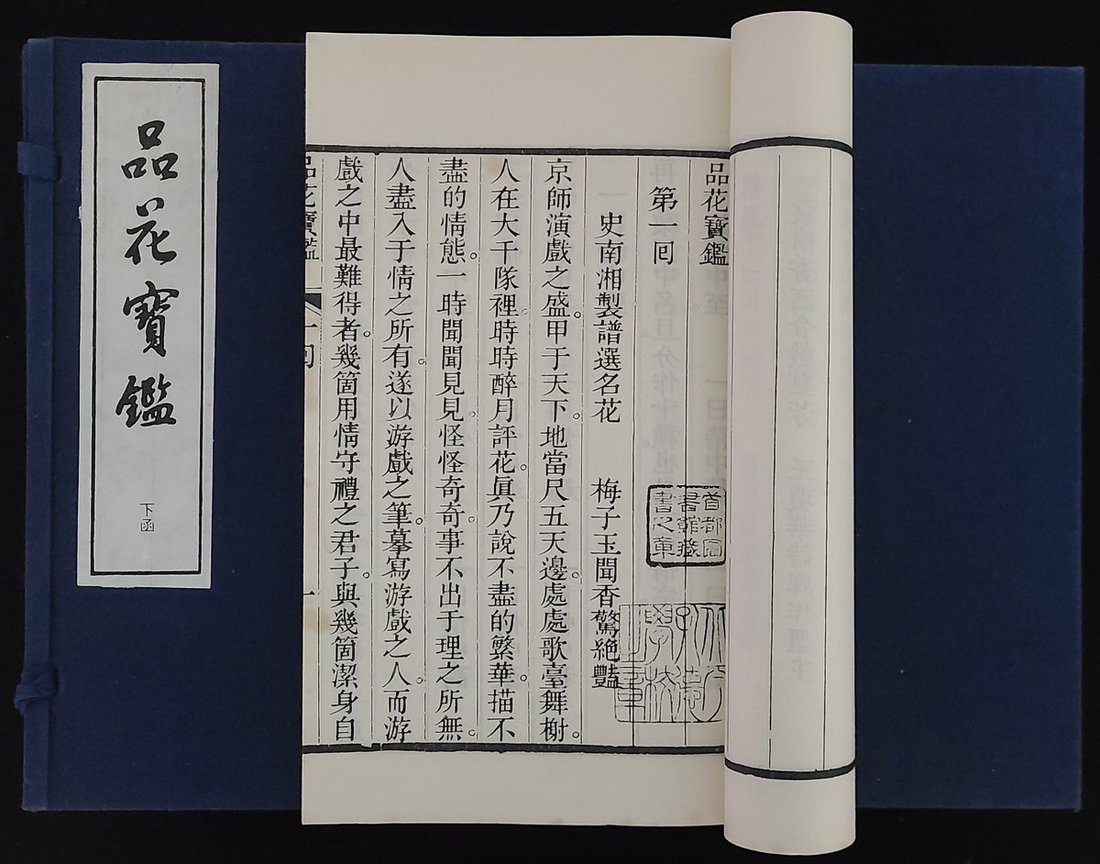 品花寶鑑
下函
品花寶鑑
第一囘
史南湘製譜選名花 梅子玉聞香驚絕豔
京師演戲之盛。甲于天下。地當尺五天邊。處處歌臺舞榭。
人在大千隊裡。時時醉月評花。眞乃說不盡的繁華。描不
盡的情態。一時聞聞見見。怪怪奇奇。事不出于理之所無。
人盡入于情之所有。遂以游戲之筆。摹寫游戲之人。而游
戲之中最難得者。幾箇用情守禮之君子。與幾箇潔身自
品花寶鑑 一囘 一
首都圖
書館藏
書之章